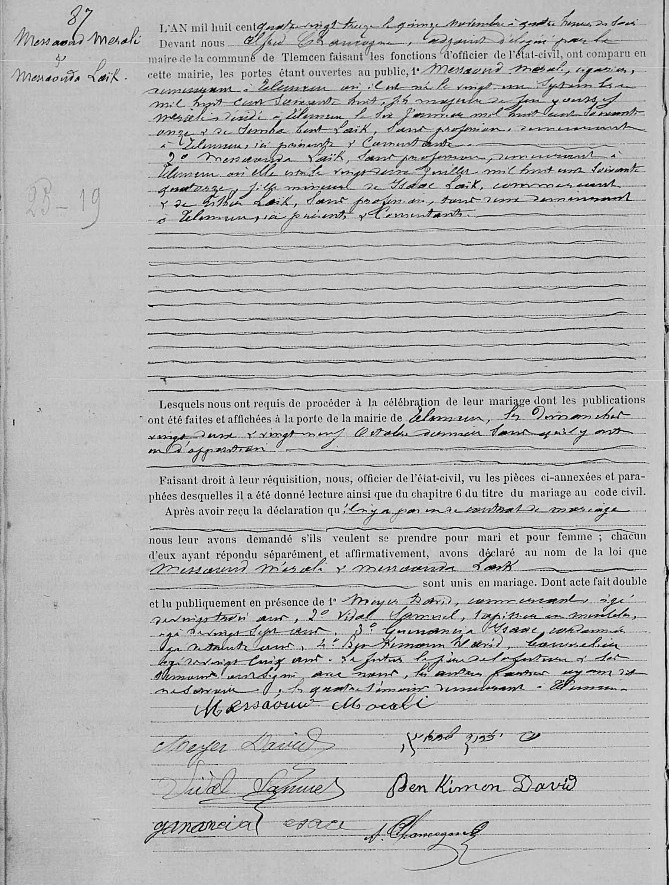 87
Messaoud Merali
&
Messaouda Laïk.
25 - 19
L'AN mil huit cent quatre vingt treize le quinze Novembre à quatre heures du soir
Devant nous Alfred Chancogne, adjoint délégué par le
maire de la commune de Tlemcen faisant les fonctions d'officier de l'état-civil, ont comparu en
cette mairie, les portes étant ouvertes au public, 1° Messaoud Merali,
demeurant à Tlemcen où il est né le vingt un Septembre
mil huit cent soixante huit, fils majeur de feu
Merali décédé à Tlemcen le Janvier mil huit cent soixante
onze & de bent Laïk, sans profession, demeurant
à Tlemcen, ici présente & Consentante.
2° Messaouda Laïk, sans profession, demeurant à
Tlemcen où elle est née le vingt deux Juillet mil huit cent soixante
quatorze, fille mineure de Isaac Laïk, commerçant
& de Esther Laïk, sans profession, tous deux demeurant
à Tlemcen, ici présents & Consentants.
Lesquels nous ont requis de procéder à la célébration de leur mariage dont les publications
ont été faites et affichées à la porte de la mairie de Tlemcen, les Dimanches
vingt deux & vingt neuf Octobre dernier sans qu'il y ait
eu d'opposition.
Faisant droit à leur réquisition, nous, officier de l'état-civil, vu les pièces ci-annexées et para-
phées desquelles il a été donné lecture ainsi que du chapitre 6 du titre du mariage au code civil.
Après avoir reçu la déclaration qu'il n'y a pas eu de contrat de mariage
nous leur avons demandé s'ils veulent se prendre pour mari et pour femme ; chacun
d'eux ayant répondu séparément et affirmativement, avons déclaré au nom de la loi que
Messaoud Merali & Messaouda Laïk
sont unis en mariage. Dont acte fait double
et lu publiquement en présence de 1° Meyer David, commerçant, âgé
de vingt trois ans, 2° Vidal Samuel, tapissier en meubles,
âgé de vingt sept ans, 3° Guenancia Isaac, cordonnier
âgé de trente ans, 4° Ben Kimoun David,
âgé de vingt cinq ans. Le futur, le père de la future & les
témoins ont signé avec nous, les autres parties ayant dit
ne savoir, les quatre témoins demeurant à Tlemcen.
Messaoud Merali
Meyer David
Vidal Samuel
Ben Kimon David
guenancia esace
A. Chancogne